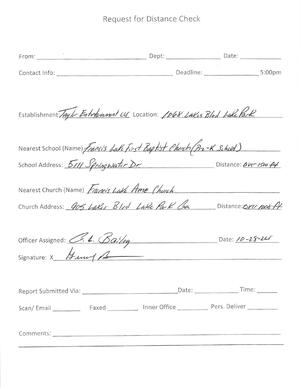 Request for Distance Check
From: Dept: Date:
Contact Info: Deadline: 5:00pm
Establishment: Location: Lakes Blvd Lake Park
Nearest School (Name) Francis Lake First Baptist Church (Pre-K School)
School Address: 5111 Springwater Dr Distance: over
Nearest Church (Name) Francis Lake Ame Church
Church Address: 905 Lakes Blvd Lake Park Ga Distance: over
Officer Assigned: Bailey Date: 10-28-
Signature: X
Report Submitted Via: Date: Time:
Scan/ Email Faxed Inner Office Pers. Deliver
Comments: